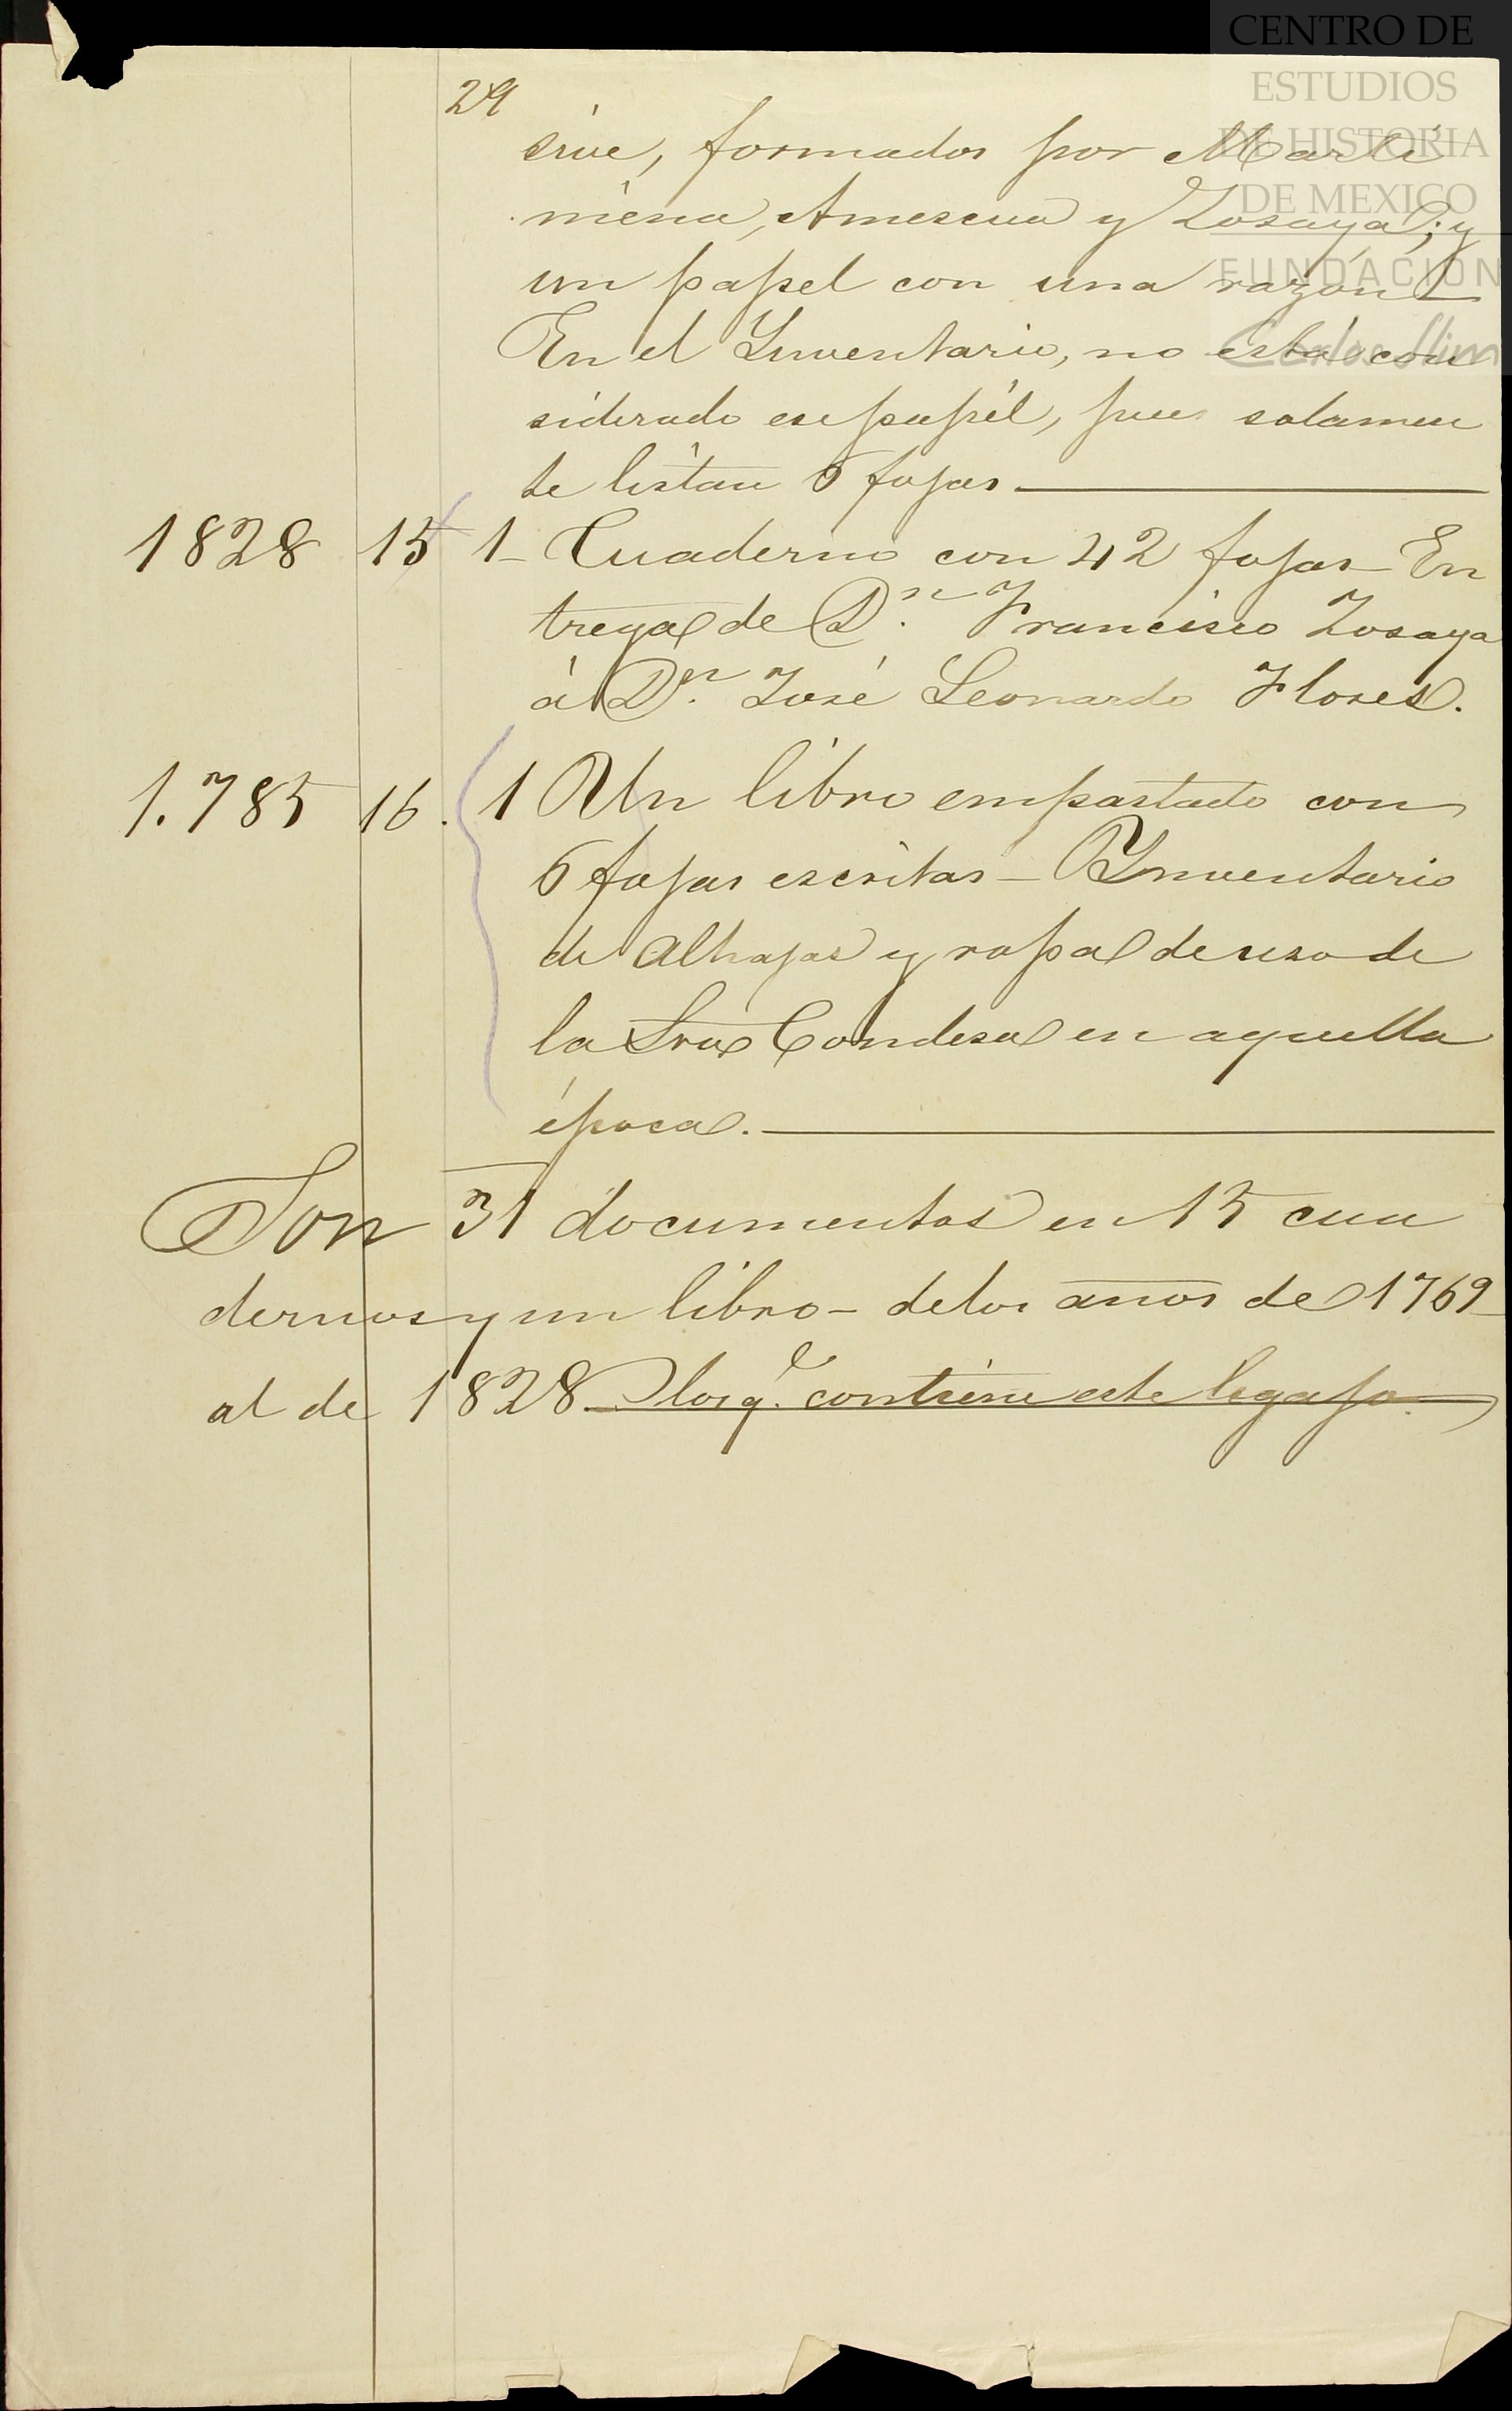 CENTRO DE
ESTUDIOS
DE HISTORIA
DE MEXICO
FUNDACIÓN
Carlos Slim
29
sive, formados por Marti
niena, Amescua y Zosaya; y
un papel con una razón
En el Inventario, no está con
siderado ese papél, pues solamen
te listan 5 fojas
1828 15 1 - Cuaderno con 42 fojas - En
trega de Dn. Francisco Zosaya
á Dn. José Leonardo Flores.
1.785 16. 1 Un libro empastado con
6 fojas escritas - Inventario
de Alhajas y ropa de uso de
la Sra Condesa en aquella
época.
Son 31 documentos en 15 cua
dernos y un libro - de los años de 1769
al de 1828 - los qe. contiene este legajo